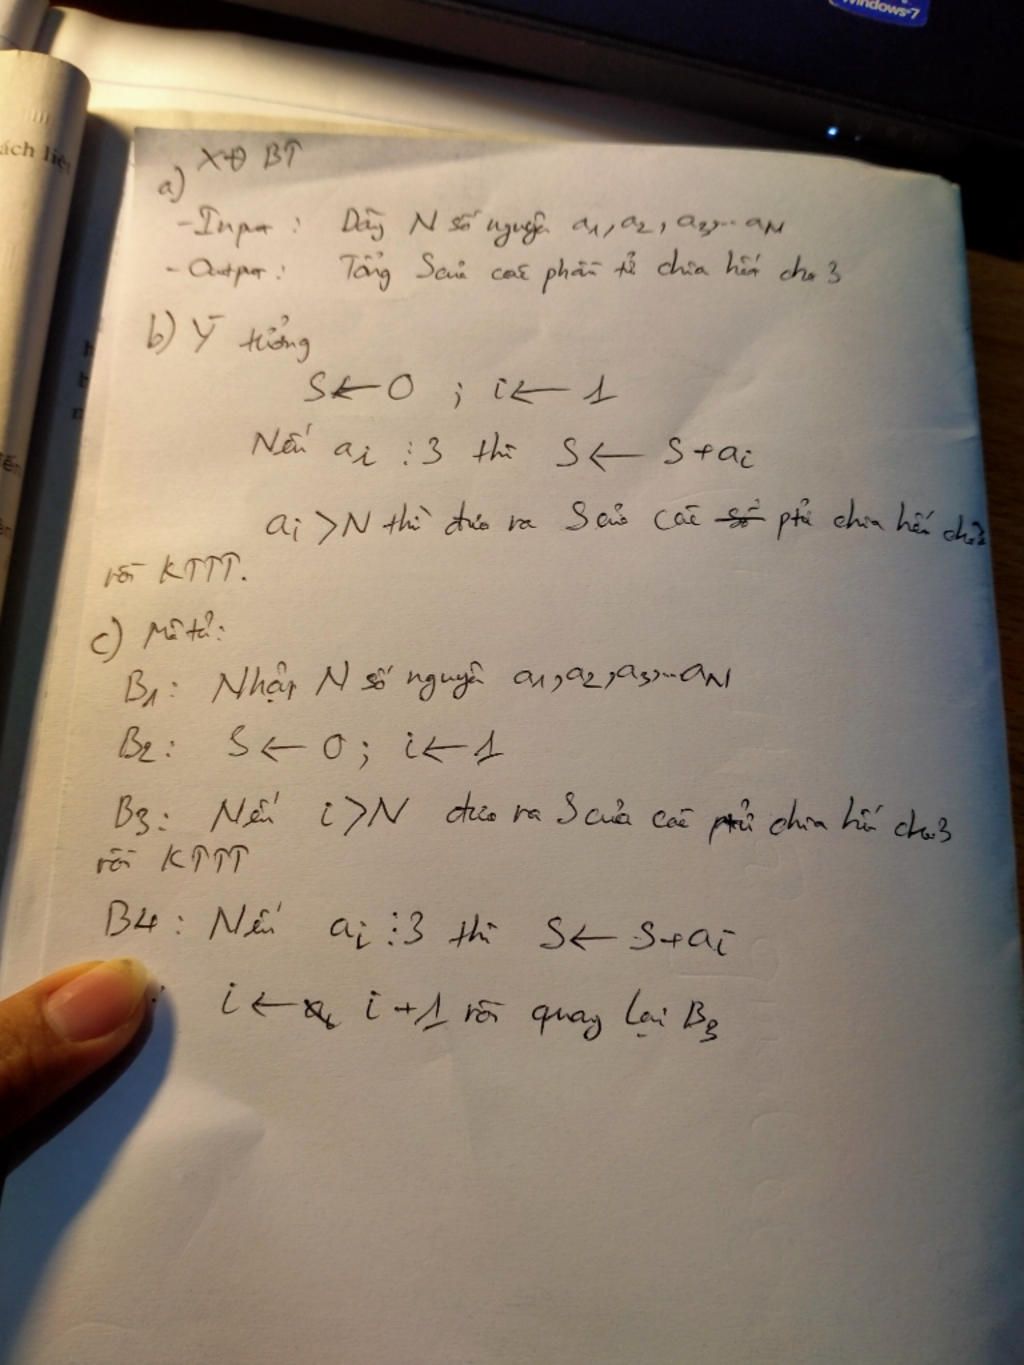 Windows 7
ách liệ
XĐ BT
a)
- Input : Dãy N số nguyên a1, a2, a3,... aN
- Output : Tổng S của các phần tử chia hết cho 3
b) Ý tưởng
S ← 0 ; i ← 1
Nếu ai ⋮ 3 thì S ← S + ai
ai > N thì đưa ra S của các số ptử chia hết cho 3
rồi KTTT.
c) Mô tả:
B1: Nhập N số nguyên a1, a2, a3,... aN
B2: S ← 0 ; i ← 1
B3: Nếu i > N đưa ra S của các ptử chia hết cho 3
rồi KTTT
B4: Nếu ai ⋮ 3 thì S ← S + ai
i ← i + 1 rồi quay lại B3